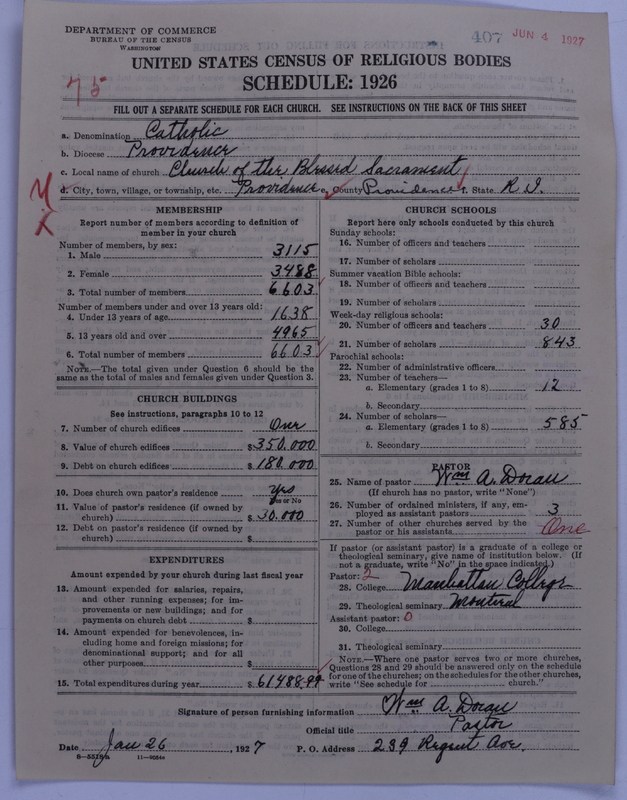 DEPARTMENT OF COMMERCE
BUREAU OF THE CENSUS
WASHINGTON
407 JUN 4 1927
UNITED STATES CENSUS OF RELIGIOUS BODIES
SCHEDULE: 1926
75
FILL OUT A SEPARATE SCHEDULE FOR EACH CHURCH. SEE INSTRUCTIONS ON THE BACK OF THIS SHEET
a. Denomination Catholic
b. Diocese Providence
c. Local name of church Church of the Blessed Sacrament
d. City, town, village, or township, etc. Providence e. County Providence f. State R. I.
MEMBERSHIP
Report number of members according to definition of
member in your church
Number of members, by sex:
1. Male 3115
2. Female 3488
3. Total number of members 6603
Number of members under and over 13 years old:
4. Under 13 years of age 1638
5. 13 years old and over 4965
6. Total number of members 6603
NOTE.—The total given under Question 6 should be
same as the total of males and females given under Question 3.
CHURCH BUILDINGS
See instructions, paragraphs 10 to 12
7. Number of church edifices One
8. Value of church edifices $350.000
9. Debt on church edifices $180.000
10. Does church own pastor's residence Yes
Yes or No
11. Value of pastor's residence (if owned by
church) $30.000
12. Debt on pastor's residence (if owned by
church) $
EXPENDITURES
Amount expended by your church during last fiscal year
13. Amount expended for salaries, repairs,
and other running expenses; for im-
provements or new buildings; and for
payments on church debt $
14. Amount expended for benevolences, in-
cluding home and foreign missions; for
denominational support; and for all
other purposes $
15. Total expenditures during year $61488.99
CHURCH SCHOOLS
Report here only schools conducted by this church
Sunday schools:
16. Number of officers and teachers
17. Number of scholars
Summer vacation Bible schools:
18. Number of officers and teachers
19. Number of scholars
Week-day religious schools:
20. Number of officers and teachers 30
21. Number of scholars 843
Parochial schools:
22. Number of administrative officers
23. Number of teachers—
a. Elementary (grades 1 to 8) 12
b. Secondary
24. Number of scholars—
a. Elementary (grades 1 to 8) 585
b. Secondary
PASTOR
25. Name of pastor Wm A. Doran
(If church has no pastor, write "None")
26. Number of ordained ministers, if any, em-
ployed as assistant pastors 3
27. Number of other churches served by the
pastor or his assistants One
If pastor (or assistant pastor) is a graduate of a college or
theological seminary, give name of institution below. (If
not a graduate, write "No" in the space indicated.)
Pastor: 2
28. College Manhattan College
29. Theological seminary Montreal
Assistant pastor: 0
30. College
31. Theological seminary
NOTE.—Where one pastor serves two or more churches,
Questions 28 and 29 should be answered only on the schedule
for one of the churches; on the schedules for the other churches,
write "See schedule for church."
Signature of person furnishing information Wm A. Doran
Official title Pastor
Date Jan 26, 1927 P. O. Address 239 Regent Ave.
8—5518a 11—9084a